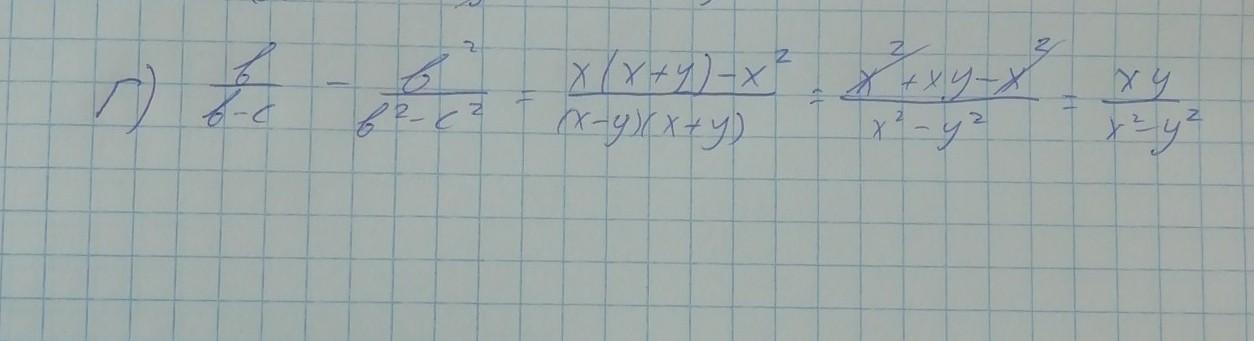 г) b/(b-c) - b²/(b²-c²) = (x(x+y)-x²)/((x-y)(x+y)) = (x²+xy-x²)/(x²-y²) = xy/(x²-y²)